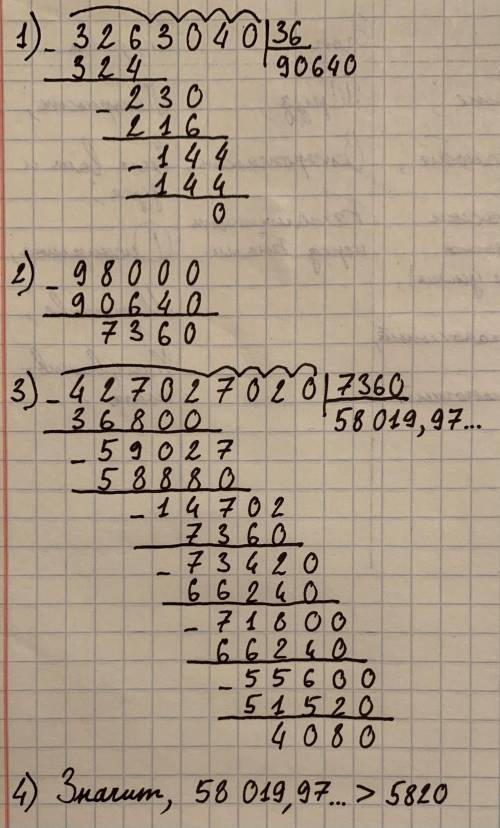 1) - 3263040 | 36
324 90640
- 230
216
- 144
144
0
2) - 98000
90640
7360
3) - 427027020 | 7360
36800 58 019,97...
- 59027
58880
- 14702
7360
- 73420
66240
- 71800
66240
- 55600
51520
4080
4) Значит, 58 019,97... > 5820